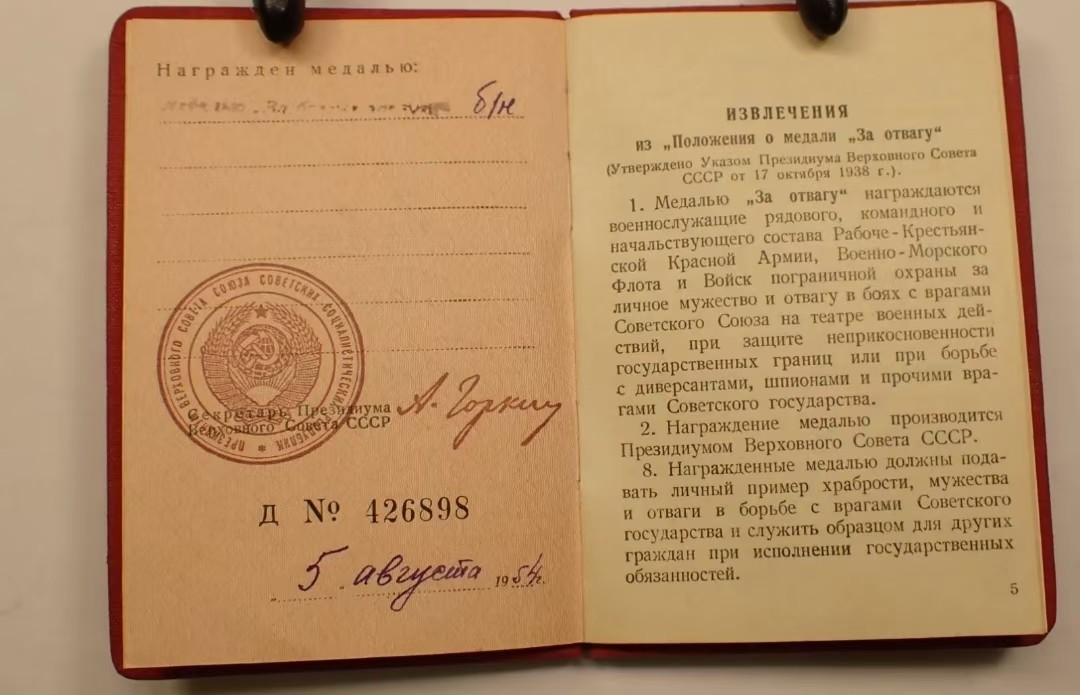 Награжден медалью:
б/н
ПРЕЗИДИУМ ВЕРХОВНОГО СОВЕТА СОЮЗА СОВЕТСКИХ СОЦИАЛИСТИЧЕСКИХ РЕСПУБЛИК *
Секретарь Президиума
Верховного Совета СССР
А. Горкин
Д № 426898
„5" августа 1954 г.
ИЗВЛЕЧЕНИЯ
из „Положения о медали „За отвагу“
(Утверждено Указом Президиума Верховного Совета
СССР от 17 октября 1938 г.).
1. Медалью „За отвагу“ награждаются
военнослужащие рядового, командного и
начальствующего состава Рабоче-Крестьян-
ской Красной Армии, Военно-Морского
Флота и Войск пограничной охраны за
личное мужество и отвагу в боях с врагами
Советского Союза на театре военных дей-
ствий, при защите неприкосновенности
государственных границ или при борьбе
с диверсантами, шпионами и прочими вра-
гами Советского государства.
2. Награждение медалью производится
Президиумом Верховного Совета СССР.
8. Награжденные медалью должны пода-
вать личный пример храбрости, мужества
и отваги в борьбе с врагами Советского
государства и служить образцом для других
граждан при исполнении государственных
обязанностей.
5